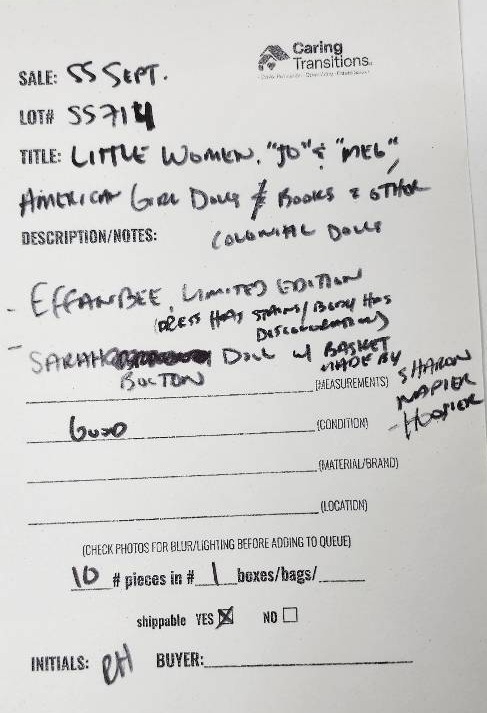 Caring
Transitions
SALE: SS SEPT.
LOT# SS714
TITLE: LITTLE WOMEN, "JO" & "MEG",
AMERICAN GIRL DOLLS & BOOKS & OTHER
DESCRIPTION/NOTES: COLONIAL DOLLS
- EFFANBEE, LIMITED EDITION
(DRESS HAS STAINS/BODY HAS
DISCOLORATION)
- SARAH DOLL W/ BASKET
BOLTON MADE BY
(MEASUREMENTS) SHARON
NAPIER
- HOOSIER
Good (CONDITION)
(MATERIAL/BRAND)
(LOCATION)
(CHECK PHOTOS FOR BLUR/LIGHTING BEFORE ADDING TO QUEUE)
10 # pieces in # 1 boxes/bags/
shippable YES NO
INITIALS: BUYER: